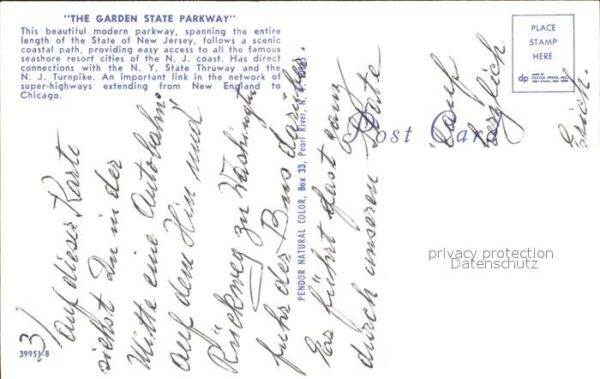 "THE GARDEN STATE PARKWAY"
This beautiful modern parkway, spanning the entire
length of the State of New Jersey, follows a scenic
coastal path, providing easy access to all the famous
seashore resort cities of the N. J. coast. Has direct
connections with the N. Y. State Thruway and the
N. J. Turnpike. An important link in the network of
super-highways extending from New England to
Chicago.
39951-B
3)
Auf dieser Karte
siehst Du in der
Mitte eine Autobahn.
Auf dem Hin und
Rückweg zu Washington
fuhr der Bus darüber.
Es führt fast ganz
durch unseren Staate
herzlich
Erich.
PENDOR NATURAL COLOR, Box 33, Pearl River, N. Y.
Post Card
PLACE
STAMP
HERE
dp
privacy protection
Datenschutz